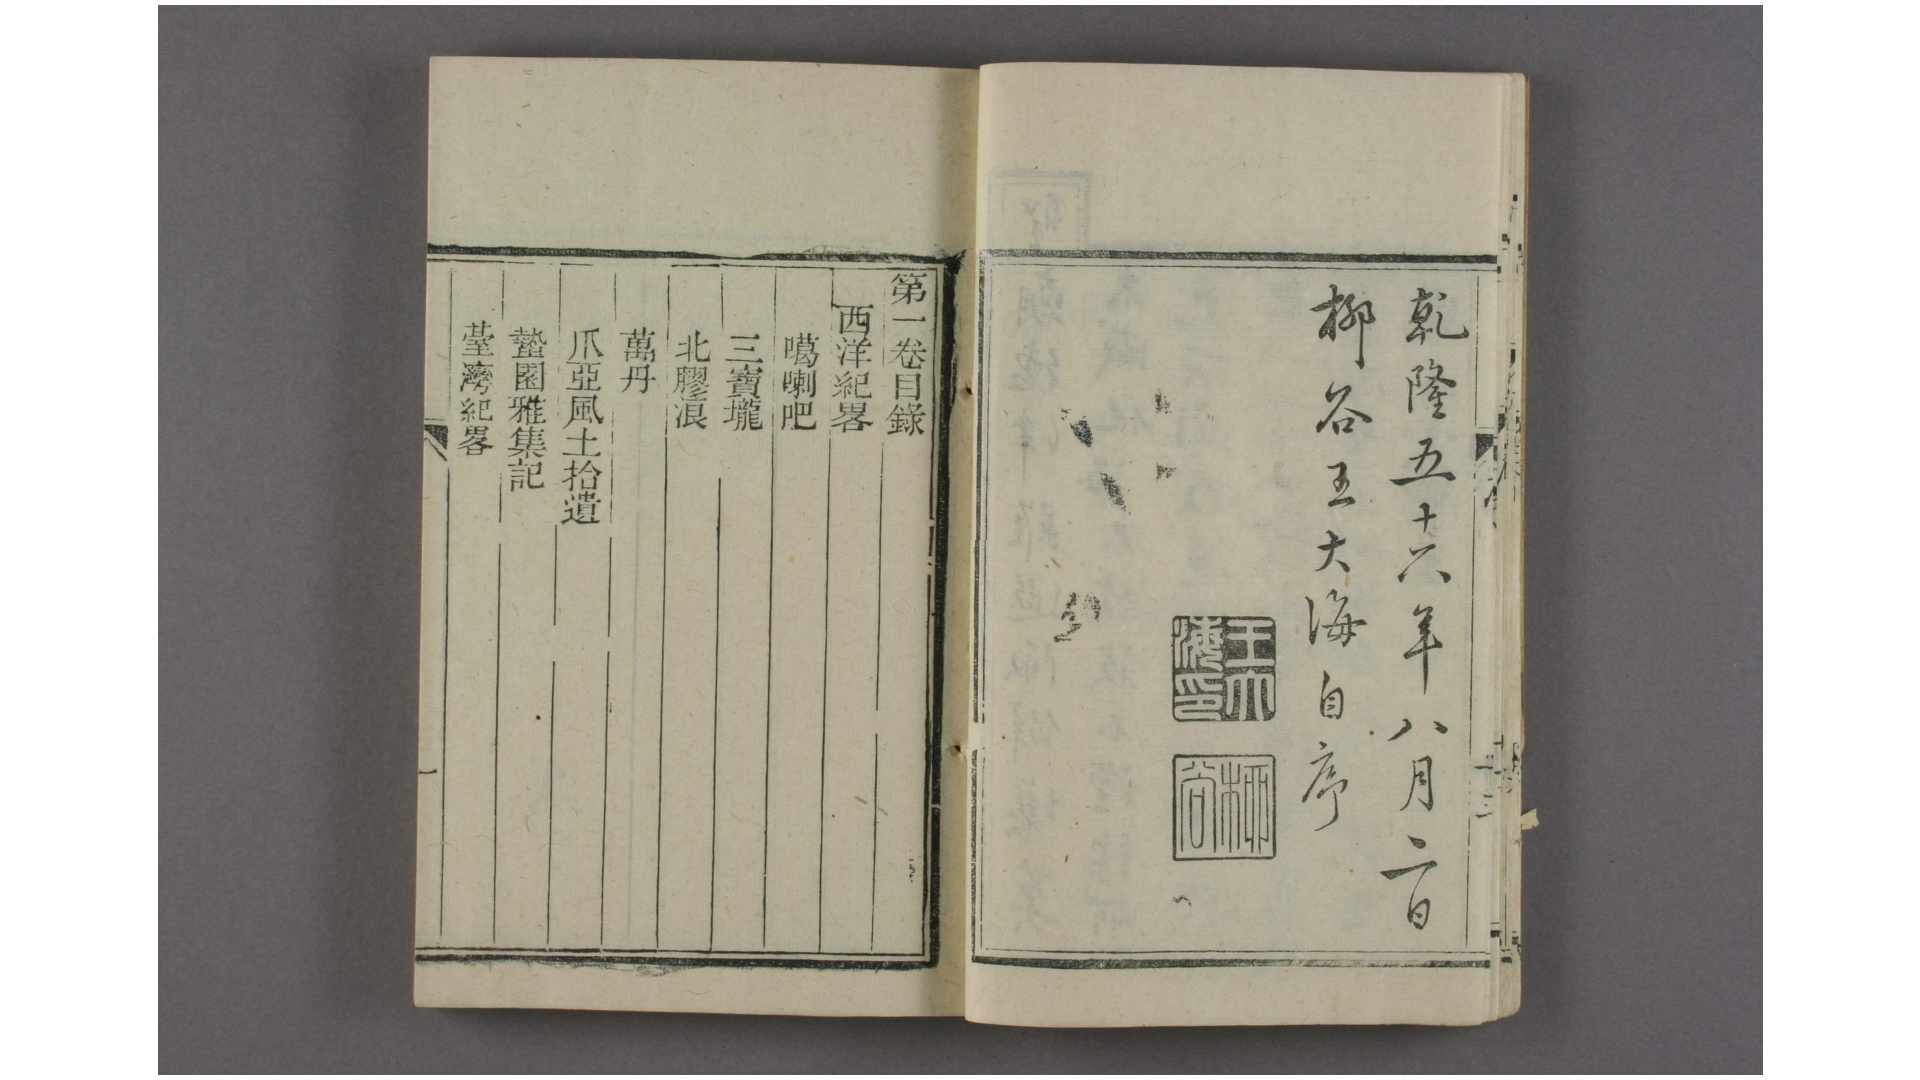 乾隆五十六年八月二日
柳谷王大海自序
王大海印
柳谷
第一卷目錄
西洋紀畧
噶喇吧
三寶壠
北膠浪
萬丹
爪亞風土拾遺
蟄園雅集記
臺灣紀畧
一